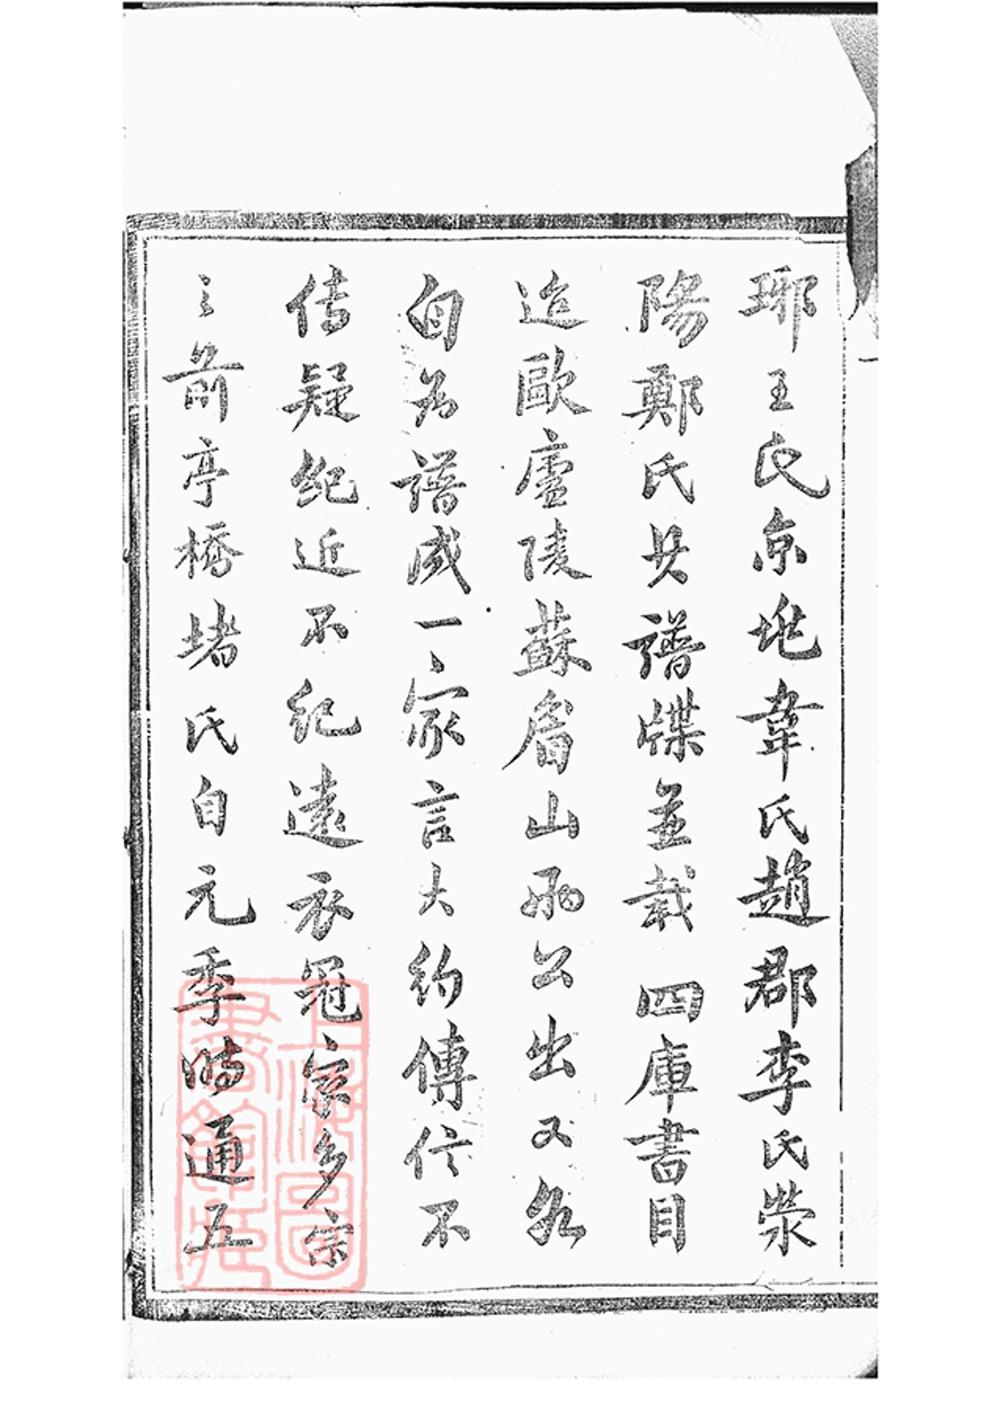 琊王氏京兆韋氏趙郡李氏滎
陽鄭氏其譜牒並載四庫書目
迨歐廬陵蘇眉山兩公出又各
自为譜成一家言大約傳信不
传疑纪近不纪遠衣冠家多宗
之前亭橋堵氏自元季時通五
上海圖書館藏